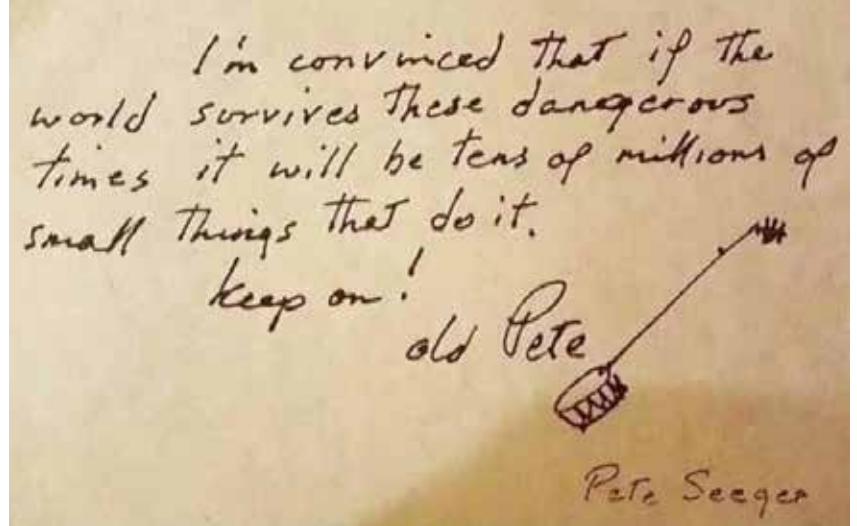 I'm convinced that if the
world survives these dangerous
times it will be tens of millions of
small things that do it.
keep on!
old Pete
Pete Seeger